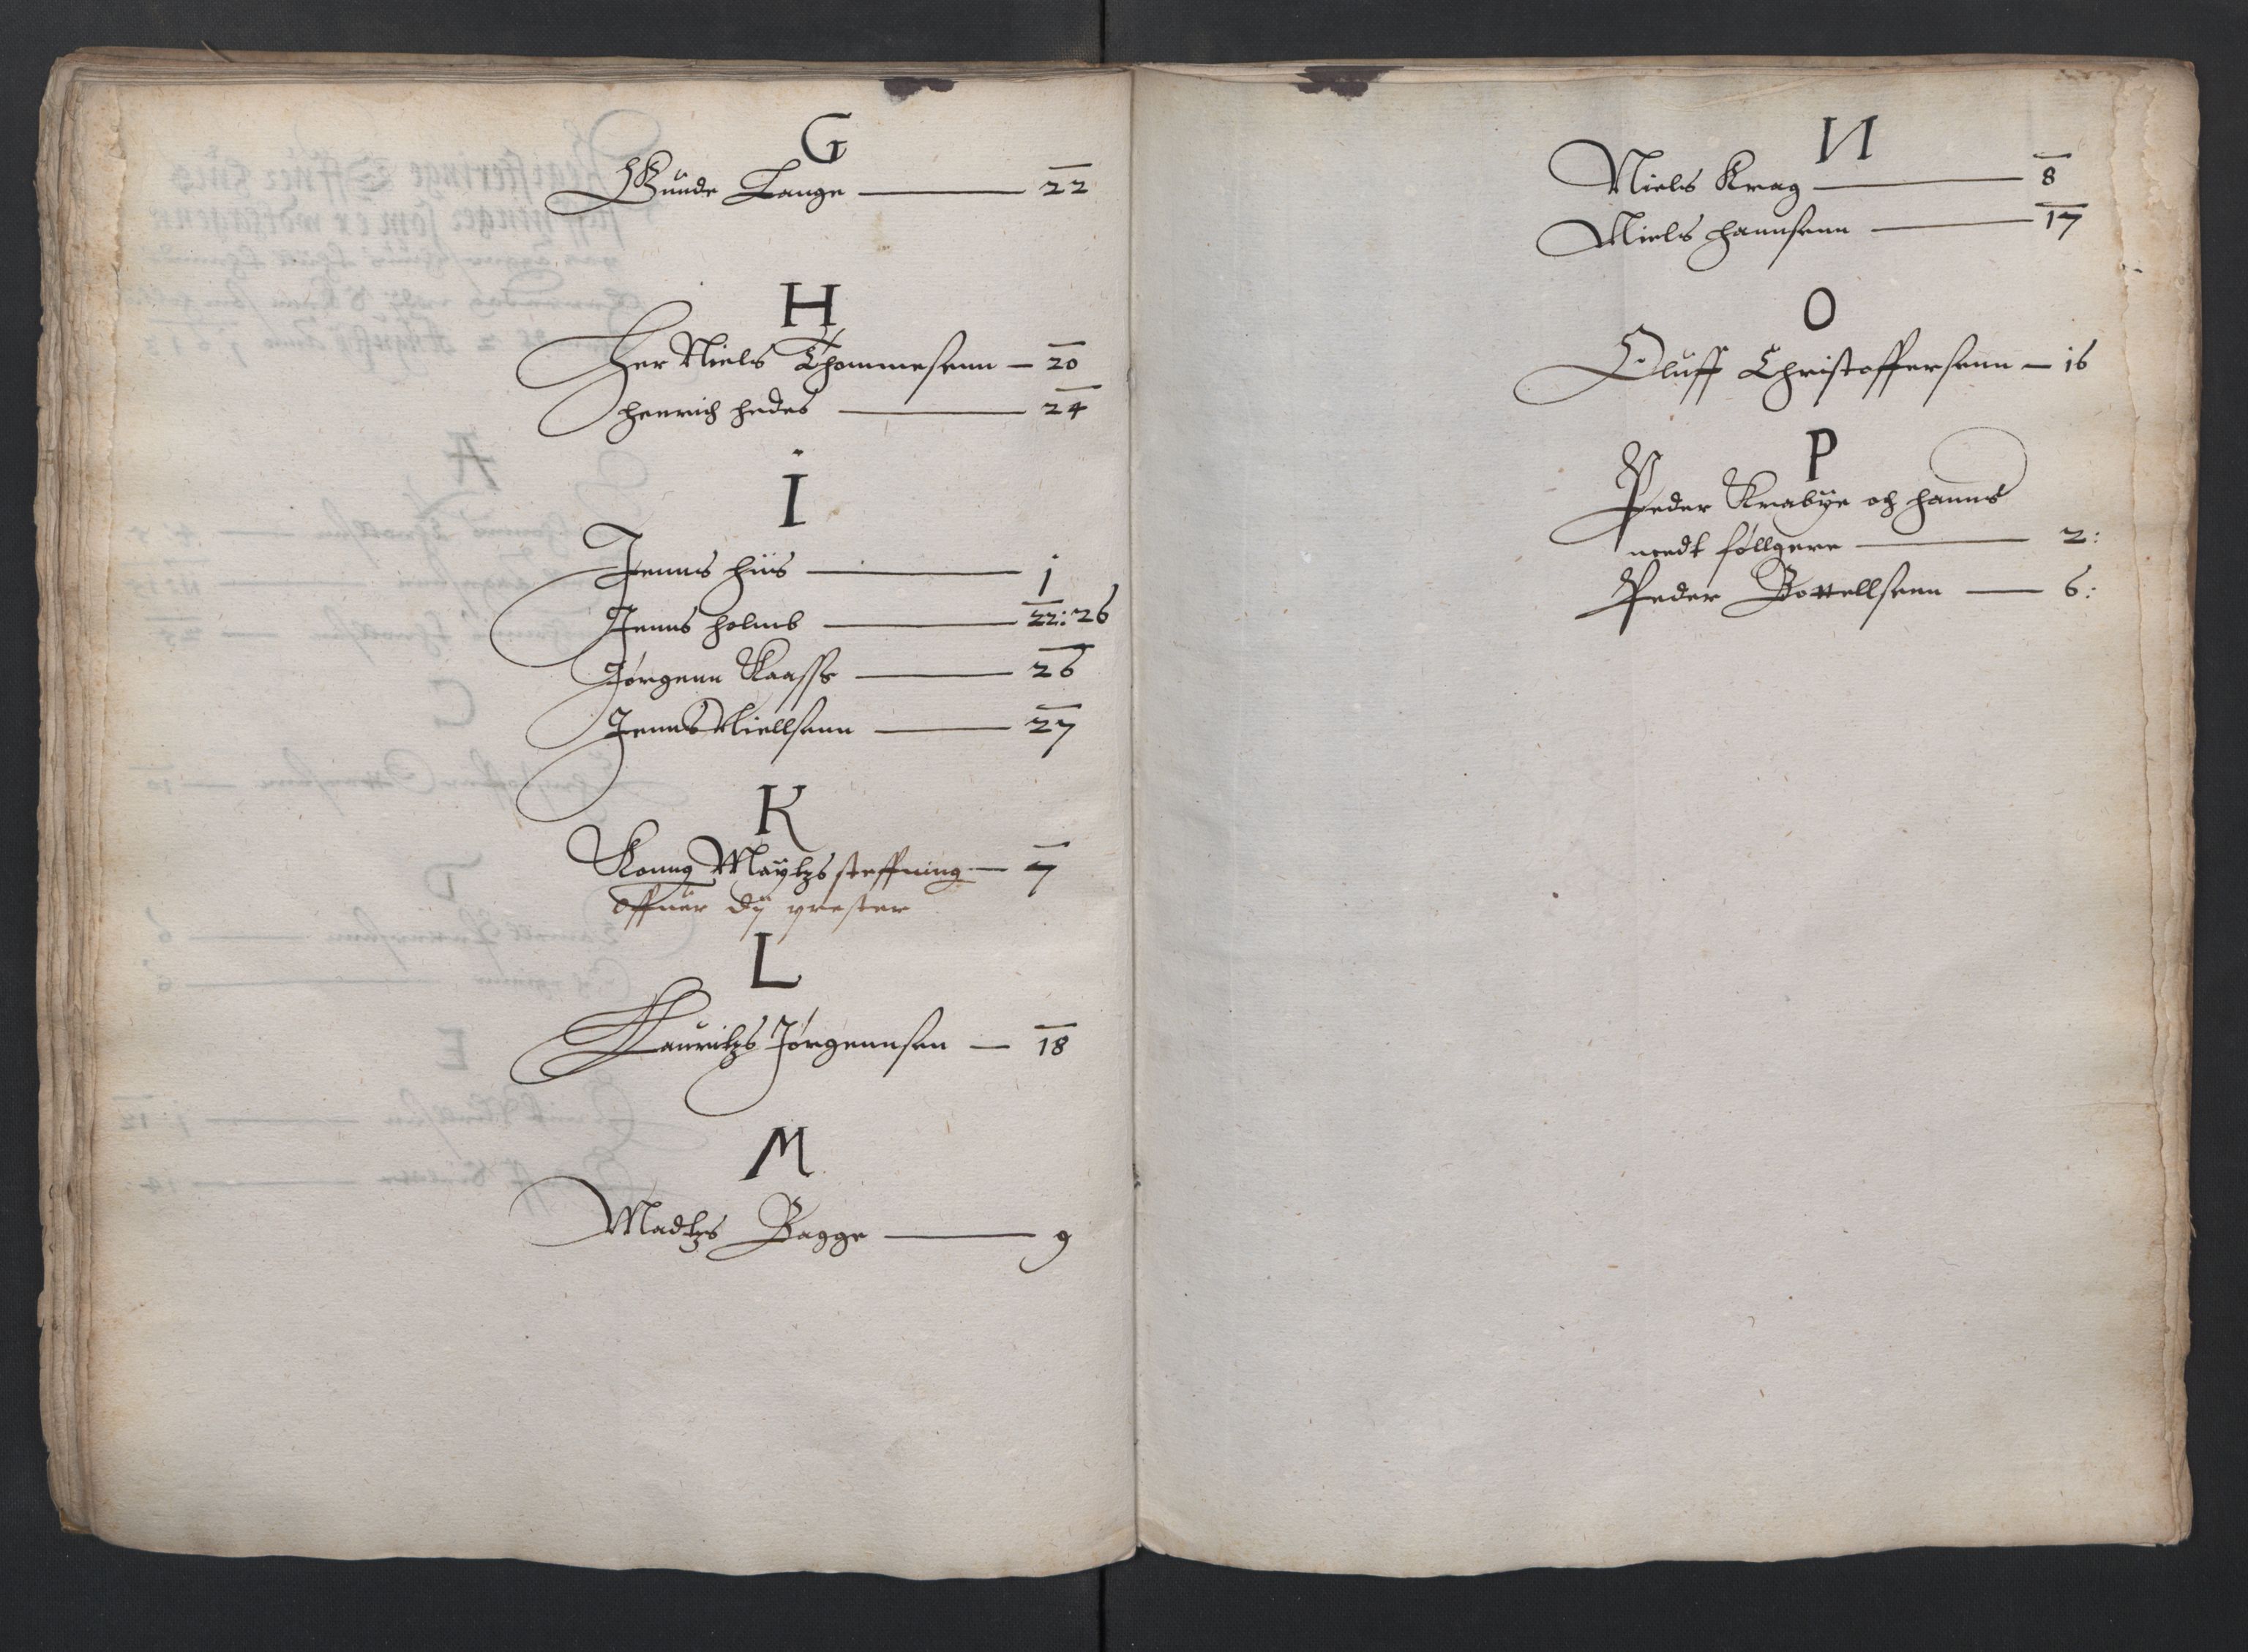 G
Gunde Lange — 22
H
Her Niels Thommesenn — 20
Henrich Hedes — 24
I
Jenns Hüs — 1
Jenns Holmb — 22: 26
Jørgenn Kaasse — 26
Jenns Niellsenn — 27
K
Konng Maÿtzs steffning — 7
offuer dÿ prester
L
Lauritzs Jørgennsen — 18
M
Madtzs Bagge — 9
N
Niels Krag — 8
Niels Hannsenn — 17
O
Oluff Christoffersenn — 16
P
Peder Krabÿe och hanns
medt föllgere — 2:
Peder Bottellsenn — 6: